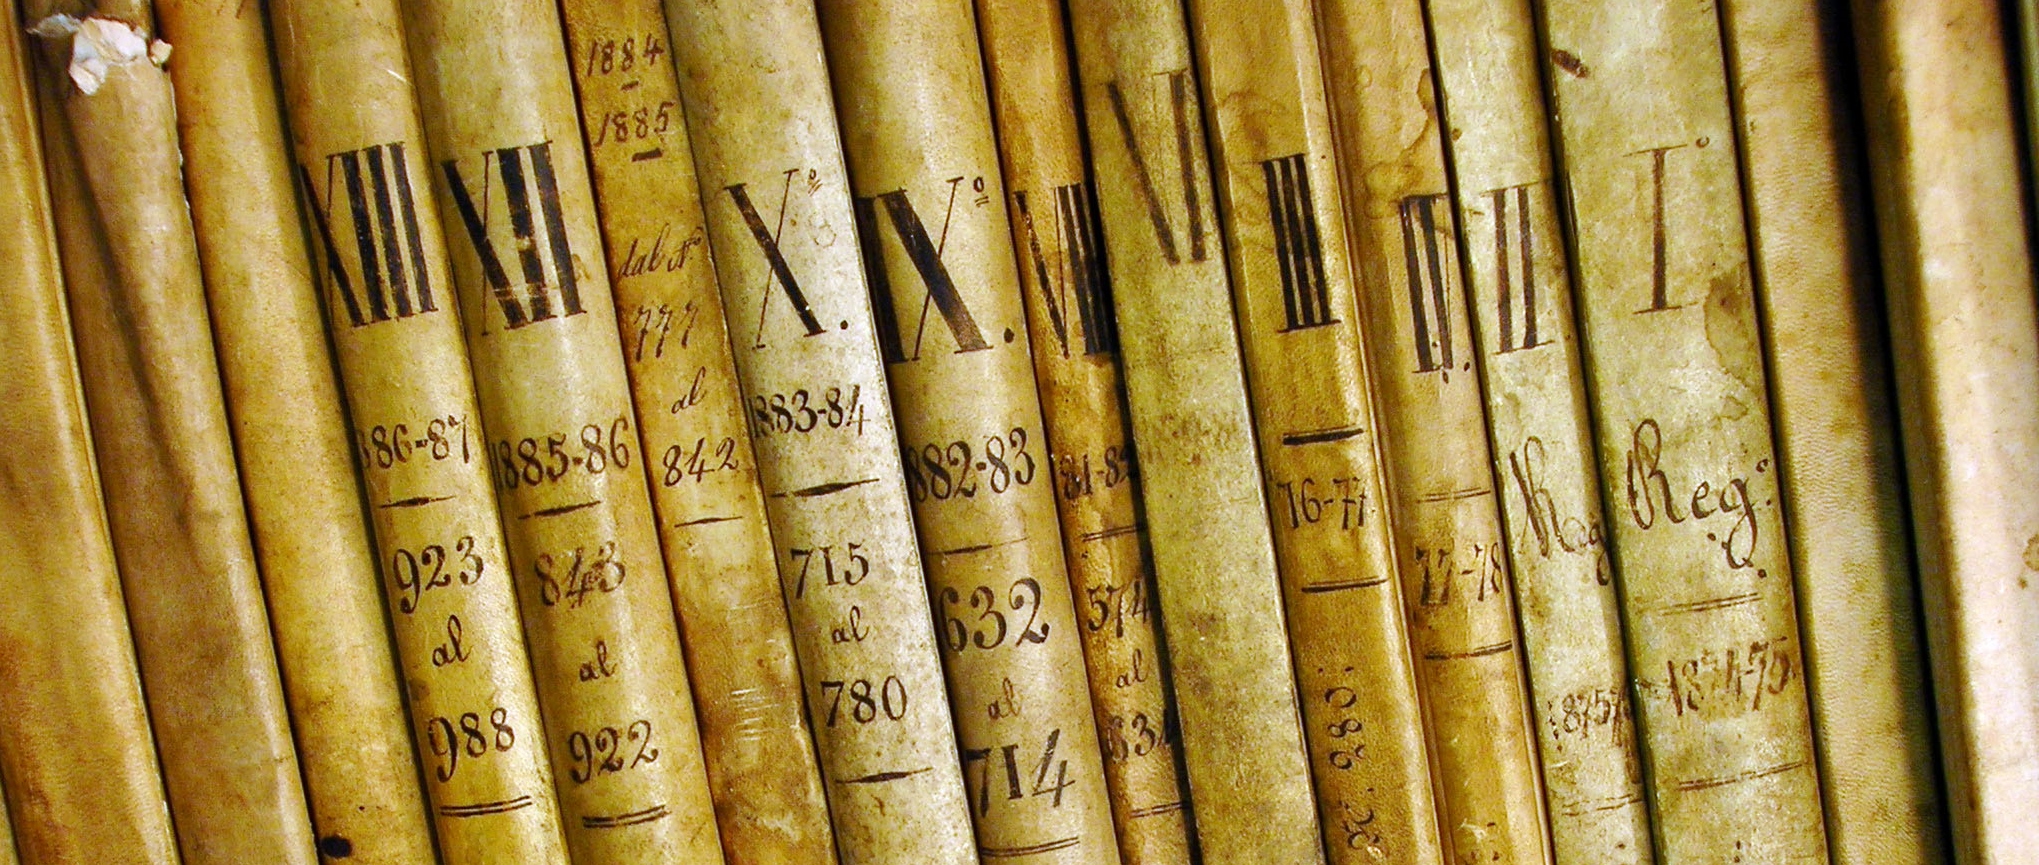 XIII
86-87
923
al
988
XII
1885-86
843
al
922
1884
-
1885
dal Nº
777
al
842
Xº.
1883-84
715
al
780
IXº.
882-83
632
al
714
VIII
81-82
574
al
631
VI
III
76-77
280:
IV.
77-78
II
Reg
1875
Iº
Reg:
1874-75